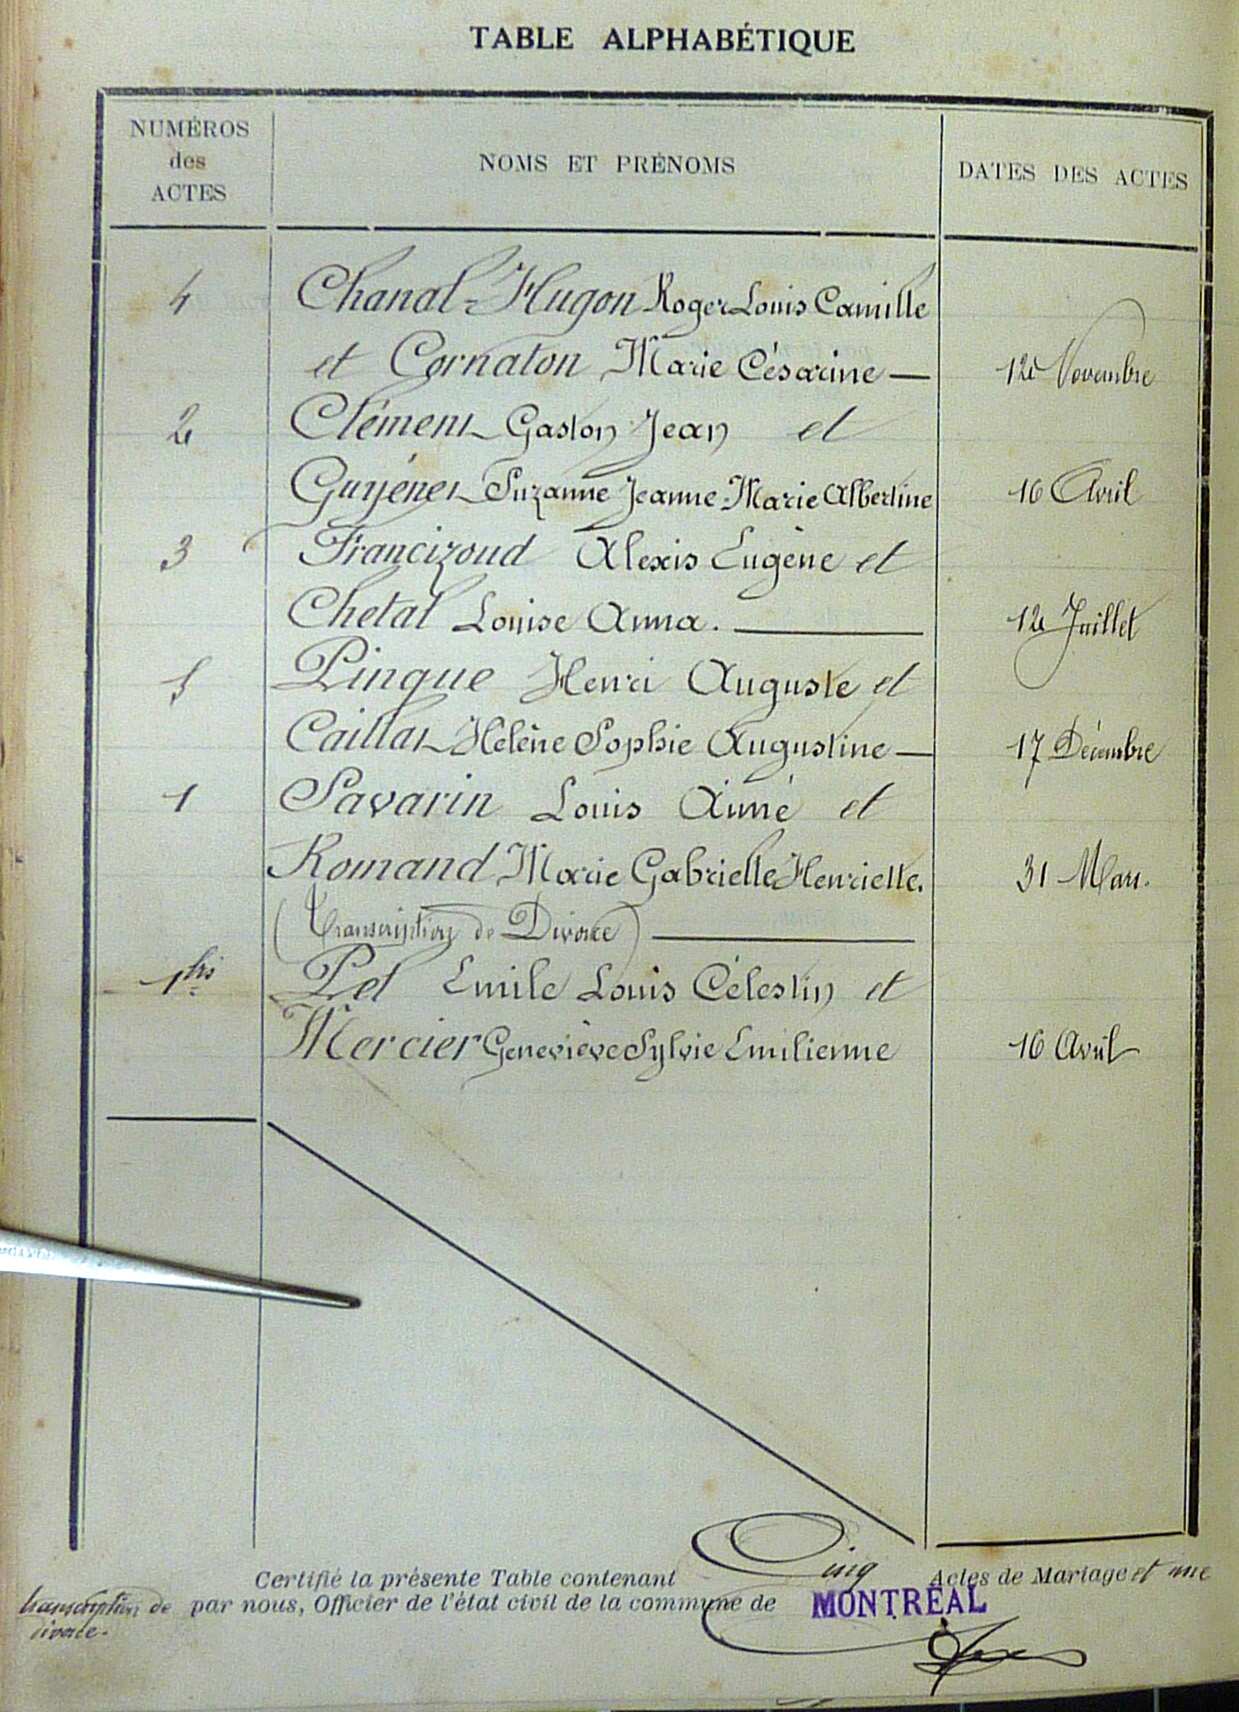 TABLE ALPHABÉTIQUE
NUMÉROS
des
ACTES
NOMS ET PRÉNOMS
DATES DES ACTES
4 Chanal-Hugon Roger Louis Camille
et Cornaton Marie Césarine — 12 Novembre
2 Clément Gaston Jean et
Guyénet Suzanne Jeanne Marie Albertine 16 Avril
3 Francizoud Alexis Eugène et
Chetal Louise Anna. — 12 Juillet
5 Pinque Henri Auguste et
Caillat Hélène Sophie Augustine — 17 Décembre
1 Savarin Louis Aimé et
Romand Marie Gabrielle Henriette. 31 Mars.
(Transcription de Divorce) —
1bis Pel Emile Louis Célestin et
Mercier Geneviève Sylvie Emilienne 16 Avril
Certifié la présente Table contenant Cinq Actes de Mariage et une
transcription de par nous, Officier de l'état civil de la commune de MONTRÉAL
divorce.